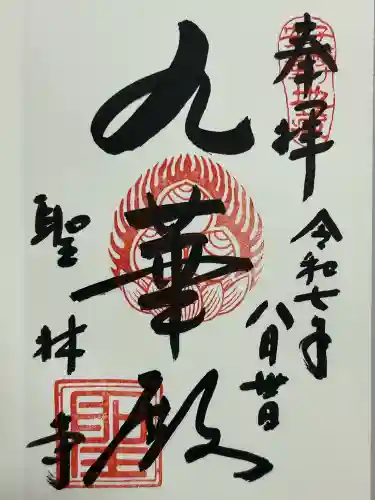 奉拝
令和七年
八月卅日
九華殿
聖林寺